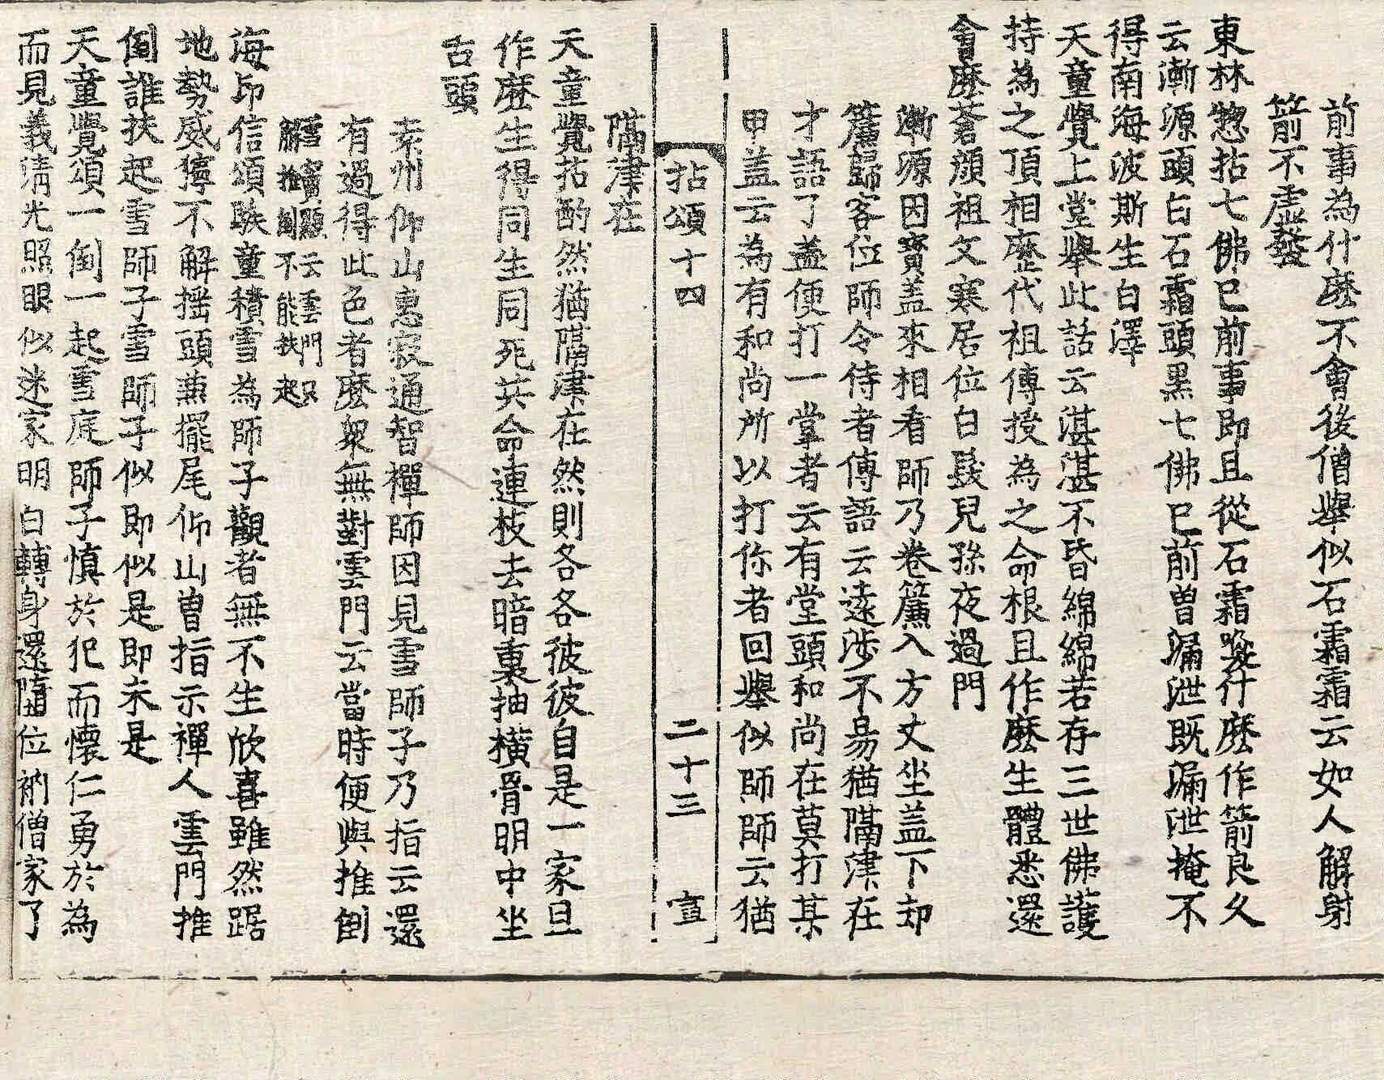 前事為什麽不會後僧舉似石霜霜云如人解射
箭不虛發
東林揔拈七佛已前事即且從石霜喚什麽作箭良久
云漸源頭白石霜頭黑七佛已前曾漏泄既漏泄掩不
得南海波斯生白澤
天童覺上堂舉此話云湛湛不昏綿綿若存三世佛護
持為之頂相歷代祖傳授為之命根且作麽生體悉還
會麽蒼顔祖父寒居位白髮兒孫夜過門
漸源因寶盖來相看師乃卷簾入方丈坐盖下却
簾歸客位師令侍者傳語云遠涉不易猶隔津在
才語了盖便打一掌者云有堂頭和尚在莫打某
甲盖云為有和尚所以打你者回舉似師師云猶
拈頌十四 二十三 宣
隔津在
天童覺拈酌然猶隔津在然則各各彼彼自是一家且
作麽生得同生同死共命連枝去暗裏抽橫骨明中坐
舌頭
袁州仰山惠寂通智禪師因見雪師子乃指云還
有過得此色者麽衆無對雲門云當時便與推倒
雪竇顯云雲門只
解推倒不能扶起
海印信頌聯童積雪為師子觀者無不生欣喜雖然踞
地勢威獰不解揺頭兼擺尾仰山曽指示禪人雲門推
倒誰扶起雪師子雪師子似即似是即未是
天童覺頌一倒一起雪庭師子慎於犯而懷仁勇於為
而見義清光照眼似迷家明白轉身還墮位衲僧家了